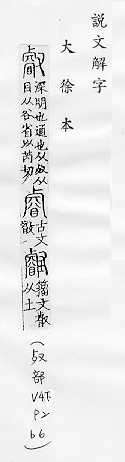 說文解字
大徐本
叡深明也通也从𣦻从目从谷省以芮切睿古文叡壡籒文叡从土
(𣦻部 V4T. P2 b6)